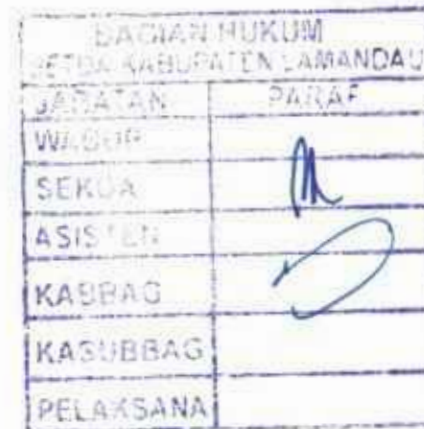 BAGIAN HUKUM
SETDA KABUPATEN LAMANDAU
JABATAN PARAF
WABUP
SEKDA
ASISTEN
KABBAG
KASUBBAG
PELAKSANA